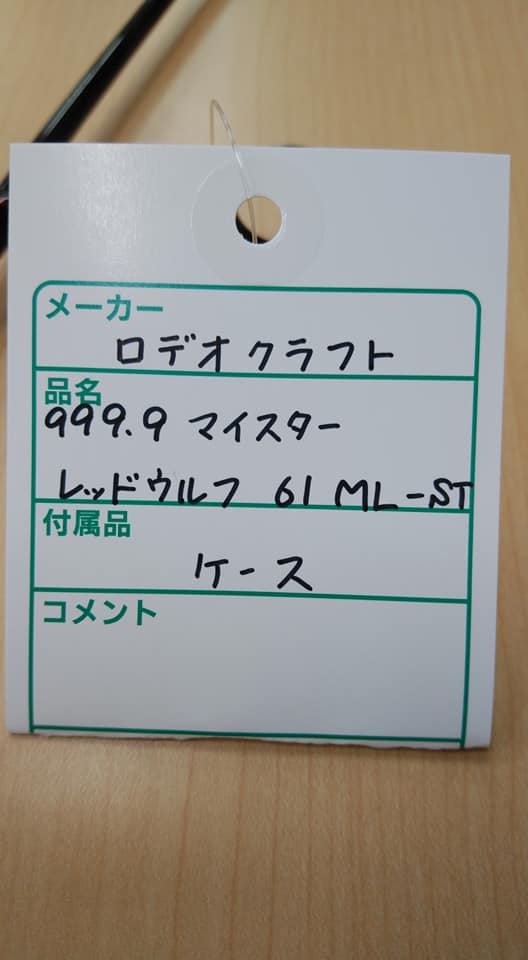 メーカー
ロデオクラフト
品名
999.9 マイスター
レッドウルフ 61 ML-ST
付属品
ケース
コメント